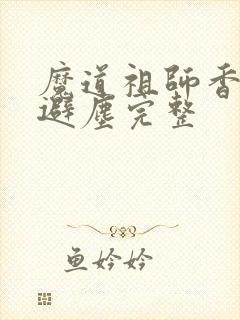 魔道祖師香
避塵完整
鱼妗妗